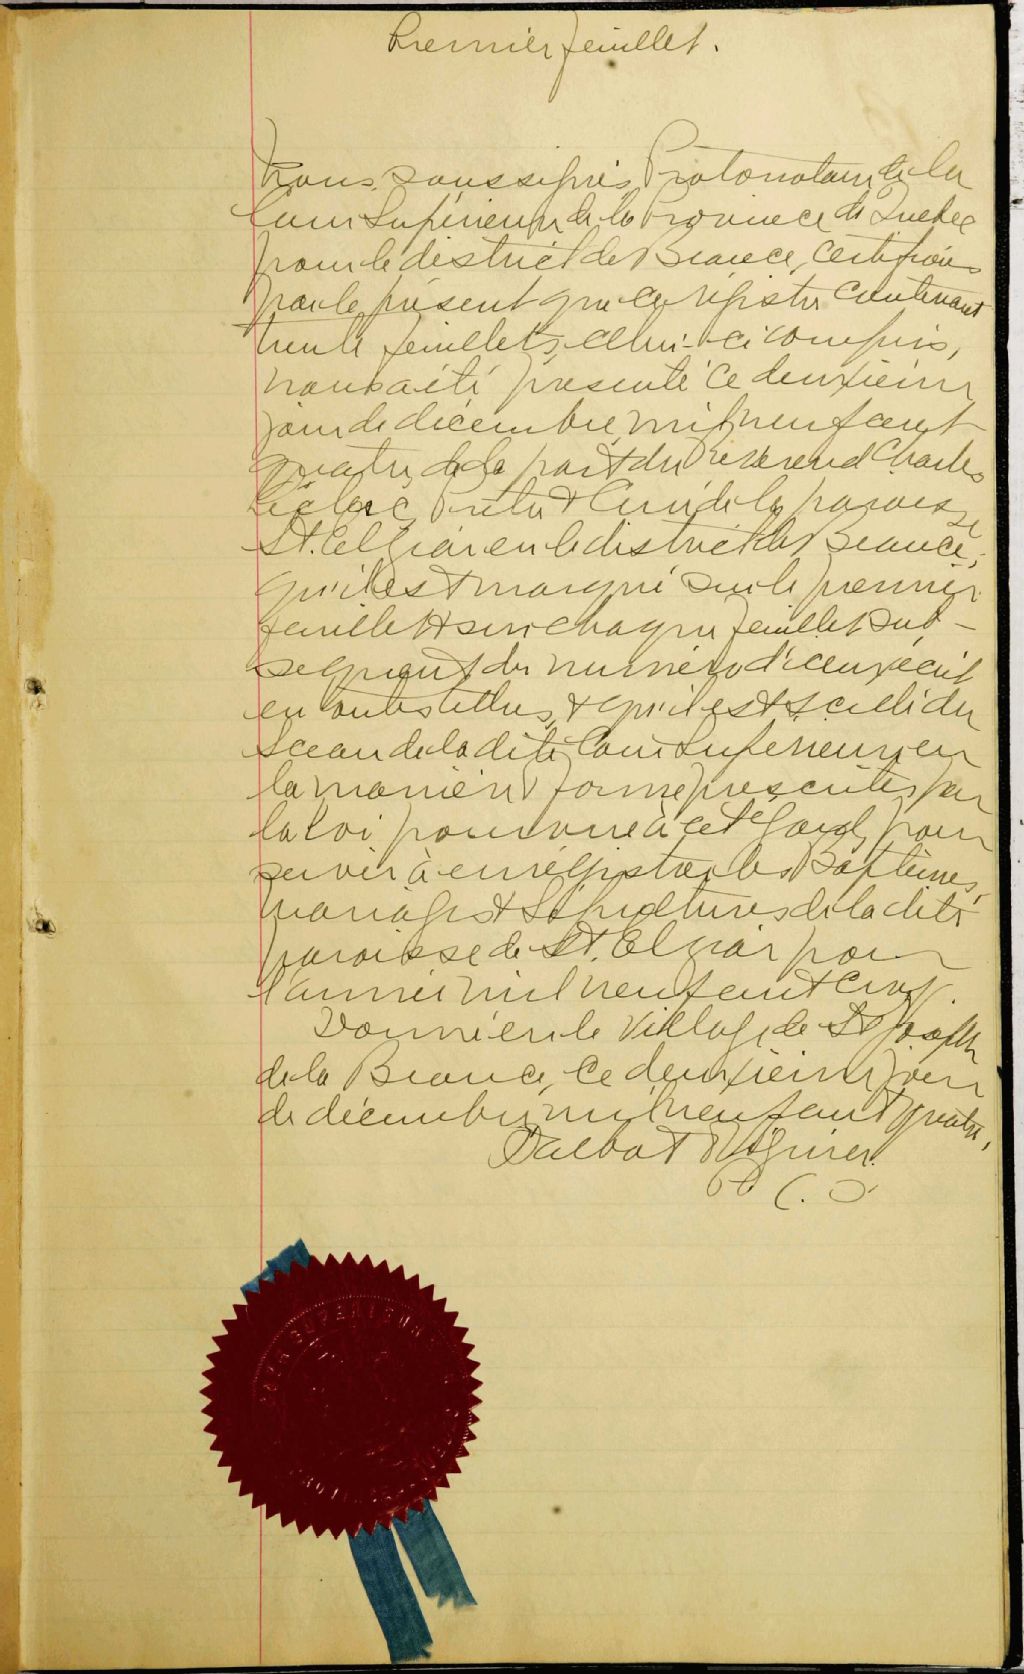 Premier feuillet.
Nous, soussignés, Protonotaire de la
Cour Supérieure de la Province de Québec
pour le district de Beauce, certifions
par le présent que ce registre contenant
trente feuillets, celui-ci compris,
nous a été présenté ce deuxième
jour de décembre mil neuf cent
quatre, de la part du Révérend Charles
Leclerc, Prêtre & Curé de la paroisse
St. Elzéar en le district de Beauce;
qu'il est marqué sur le premier
feuillet & sur chaque feuillet sub-
séquent du numéro d'iceux écrit
en toutes lettres, & qu'il est scellé du
sceau de la dite Cour Supérieure en
la manière & forme prescrites par
la loi pourvue à cet égard, pour
servir à enrégistrer les Baptêmes,
mariages & Sépultures de la dite
paroisse de St. Elzéar pour
l'année mil neuf cent cinq.
Donné en le Village de St Joseph
de la Beauce, ce deuxième jour
de décembre mil neuf cent quatre.
P. C. S.
COUR SUPERIEURE